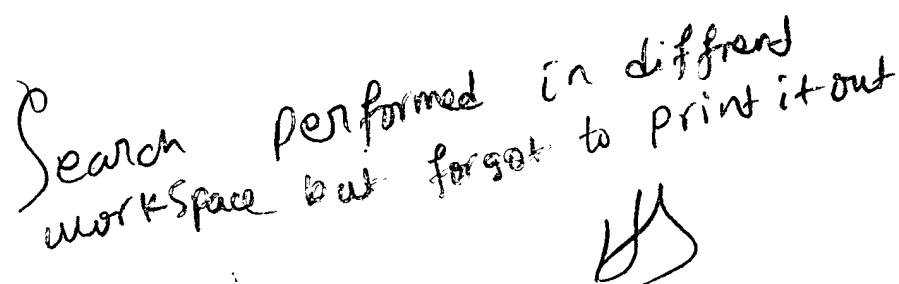 Search performed in diffrend
workspace but forgot to print it out